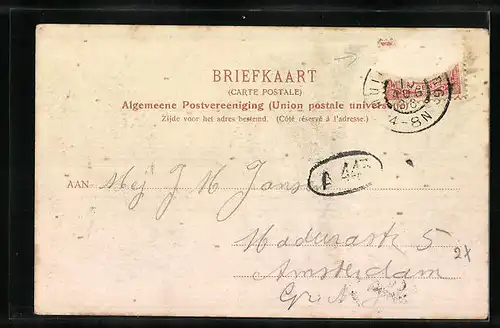 BRIEFKAART
(CARTE POSTALE)
Algemeene Postvereeniging (Union postale univers
Zijde voor het adres bestemd. (Côté réservé à l'adresse.)
4-8N
A 445
AAN Mej J H Jans
Madurastr 5
2x
Amsterdam